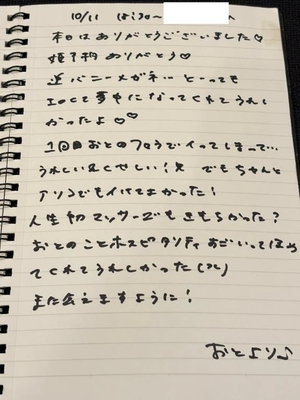 10/11 18:30〜 へ
本日はありがとうございました♡
姫予約ありがとう♡
逆バニーメガネ… とーっても
エロくて夢中になってくれてうれし
かったよ♡♡
1回目おとのフェラでイってしまって…
うれしい&くやしい!笑 でもちゃんと
アソコでもイけてよかった!
人生初マッサージもきもちかった?
おとのことホスピタリティすごいってほめ
てくれてうれしかった(?ん)
また会えますように!
おとより♪